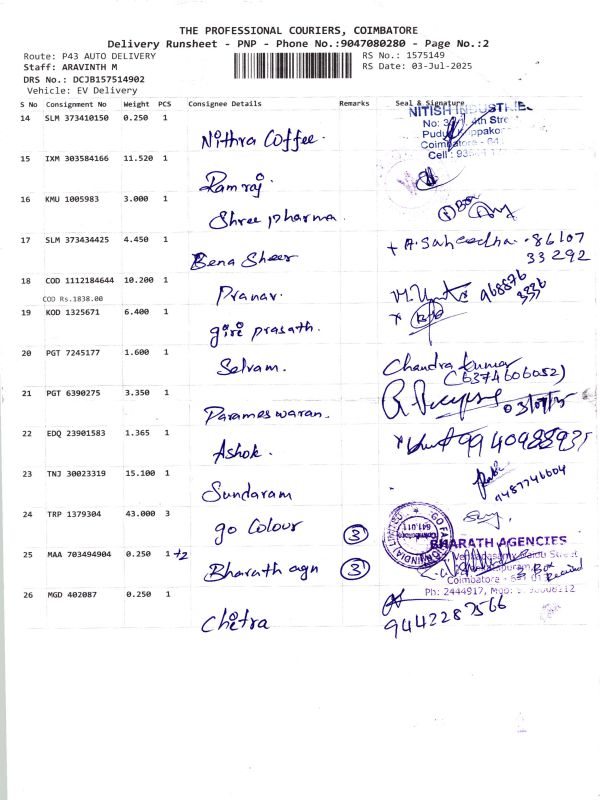 THE PROFESSIONAL COURIERS, COIMBATORE
Delivery Runsheet - PNP - Phone No.:9047080280 - Page No.:2
Route: P43 AUTO DELIVERY RS No.: 1575149
Staff: ARAVINTH M RS Date: 03-Jul-2025
DRS No.: DCJB157514902
Vehicle: EV Delivery
S No Consignment No Weight PCS Consignee Details Remarks Seal & Signature
14 SLM 373410150 0.250 1 Nithra Coffee.
NITISH INDUSTRIE
No: 3 4th Stre
Coimbatore - 64
Cell :
15 IXM 303584166 11.520 1 Ramraj
16 KMU 1005983 3.000 1 Shree pharma.
17 SLM 373434425 4.450 1 Bena Sheer + A. Saheedha. 86107
33292
18 COD 1112184644 10.200 1 Pranav. 968876
3336
COD Rs.1838.00
19 KOD 1325671 6.400 1 giri prasath.
20 PGT 7245177 1.600 1 Selvam. Chandra kumar
(6374606052)
21 PGT 6390275 3.350 1 Parameswaran. 03/07/25
22 EDQ 23901583 1.365 1 Ashok. 9940988935
23 TNJ 30023319 15.100 1 Sundaram 9487746604
24 TRP 1379304 43.000 3 go Colour 3
25 MAA 703494904 0.250 1 +2 Bharath agn 3
BHARATH AGENCIES
Street
Coimbatore - 641 01
Ph: 2444917, Mob:
3 Box
Received
26 MGD 402087 0.250 1 Chitra 9442287566